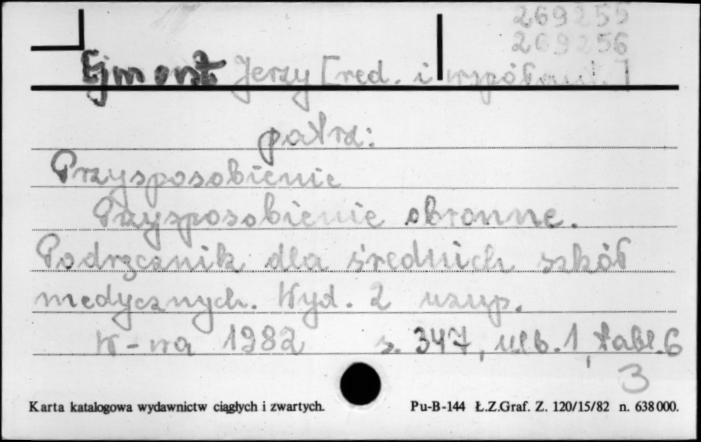 269255
269256
Ejmont Jerzy [red. i współaut.]
patrz:
Przysposobienie
Przysposobienie obronne.
Podręcznik dla średnich szkół
medycznych. Wyd. 2 uzup.
W-wa 1982 s. 347, nlb. 1, tabl. 6
3
Karta katalogowa wydawnictw ciągłych i zwartych. Pu-B-144 Ł.Z.Graf. Z. 120/15/82 n. 638000.